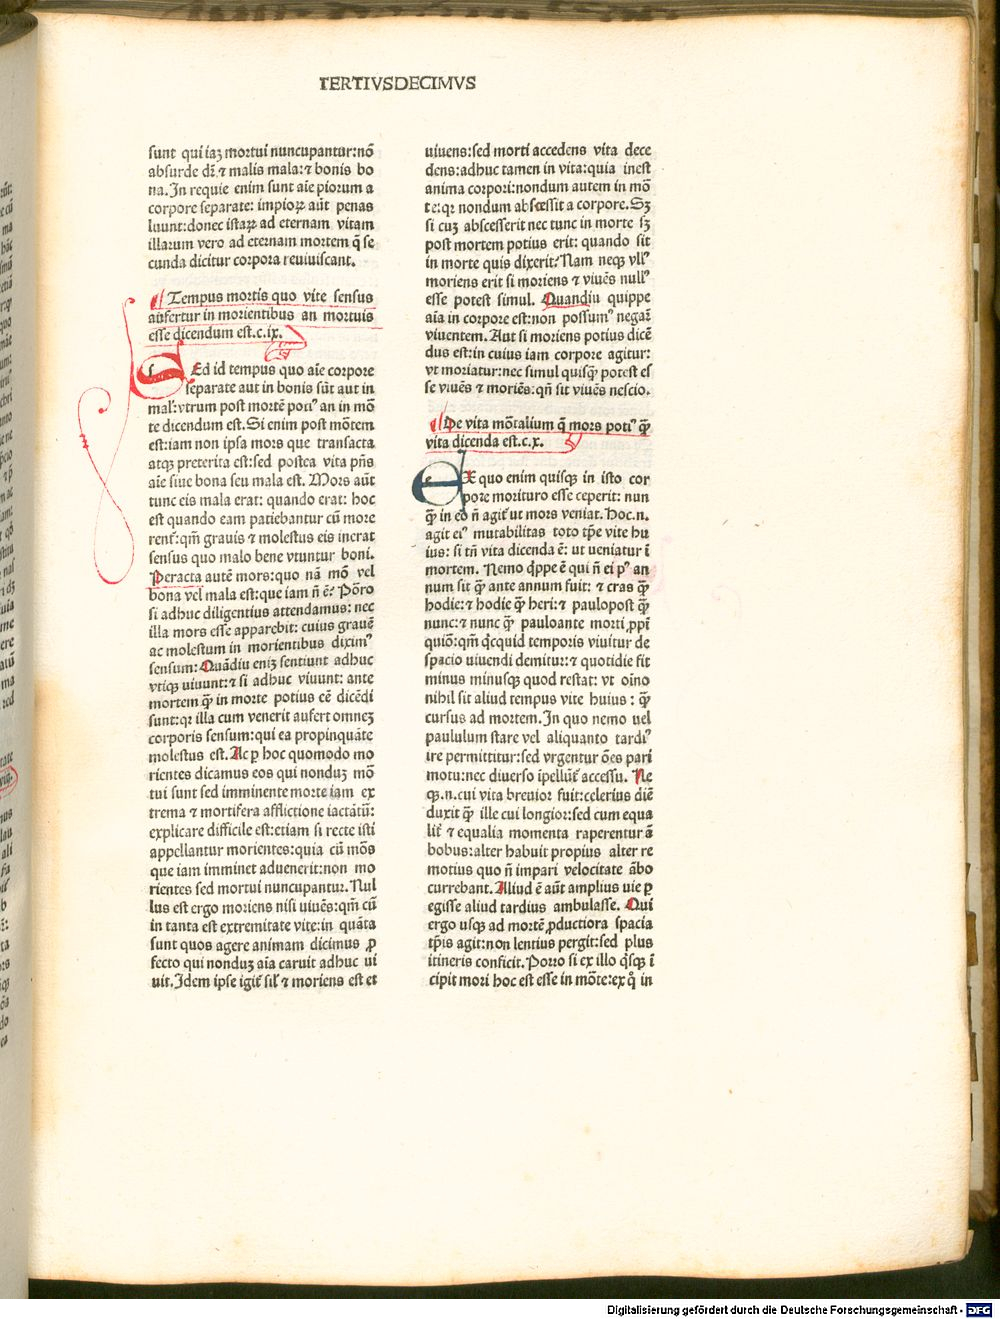 TERTIVSDECIMVS
sunt qui iaʒ mortui nuncupantur:nō
absurde dr̄.⁊ malis mala:⁊ bonis bo
na.In requie enim sunt aīe piorum a
corpore separate: impioꝝ aūt penas
luunt:donec istaꝝ ad eternam vitam
illarum vero ad eternam mortem q̄ se
cunda dicitur corpora reuiuiscant.
Tempus mortis quo vite sensus
aufertur in morientibus an mortuis
esse dicendum est.c.ix.
SEd id tempus quo aīe corpore
separate aut in bonis sūt aut in
mal':vtrum post mortē potiꝰ an in mō
te dicendum est.Si enim post mōtem
est:iam non ipsa mors que transacta
atqꝫ preterita est:sed postea vita p̄ns
aīe siue bona seu mala est. Mors aūt
tunc eis mala erat: quando erat: hoc
est quando eam patiebantur cū more
rent̄:qm̄ grauis ⁊ molestus eis inerat
sensus quo malo bene vtuntur boni.
Peracta autē mors:quo nā mō vel
bona vel mala est:que iam n̄ ē? Pōro
si adhuc diligentius attendamus: nec
illa mors esse apparebit: cuius grauē
ac molestum in morientibus diximꝰ
sensum:Quādiu eniʒ sentiunt adhuc
vtiqꝫ uiuunt:⁊ si adhuc viuunt: ante
mortem q̄ꝫ in morte potius eē dicēdi
sunt:qr illa cum venerit aufert omneʒ
corporis sensum:qui ea propinquāte
molestus est. Ac ꝑ hoc quomodo mo
rientes dicamus eos qui nonduʒ mō
tui sunt sed imminente morte iam ex
trema ⁊ mortifera afflictione iactātū:
explicare difficile est:etiam si recte isti
appellantur morientes:quia cū mōs
que iam imminet aduenerit:non mo
rientes sed mortui nuncupantur. Nul
lus est ergo moriens nisi uiuēs:qm̄ cū
in tanta est extremitate vite:in quāta
sunt quos agere animam dicimus ꝓ
fecto qui nonduʒ aīa caruit adhuc ui
uit.Idem ipse igit̄ sil' ⁊ moriens est et
uiuens:sed morti accedens vita dece
dens:adhuc tamen in vita:quia inest
anima corpori:nondum autem in mō
te:qr nondum abscessit a corpore.Sʒ
si cuʒ abscesserit nec tunc in morte sʒ
post mortem potius erit: quando sit
in morte quis dixerit? Nam neqꝫ vllꝰ
moriens erit si moriens ⁊ viuēs nullꝰ
esse potest simul. Quandiu quippe
aīa in corpore est:non possumꝰ negar̄
viuentem. Aut si moriens potius dicē
dus est:in cuius iam corpore agitur:
vt moriatur:nec simul quisqꝫ potest es
se viuēs ⁊ moriēs:qn̄ sit viuēs nescio.
De vita mōtalium q̄ mors potiꝰ q̄ꝫ
vita dicenda est.c.x.
EX quo enim quisqꝫ in isto cor
pore morituro esse ceperit: nun
q̄ꝫ in eo n̄ agit̄ ut mors veniat. Hoc.n.
agit eiꝰ mutabilitas toto tp̄e vite hu
ius: si tn̄ vita dicenda ē: ut ueniatur ī
mortem. Nemo q̇ppe ē qui n̄ ei pꝰ an
num sit q̄ꝫ ante annum fuit: ⁊ cras q̄ꝫ
hodie:⁊ hodie q̄ꝫ heri:⁊ paulopost q̄ꝫ
nunc:⁊ nunc q̄ꝫ pauloante morti ꝓpī
quiō:qm̄ q̇cquid temporis viuitur de
spacio uiuendi demitur:⁊ quotidie fit
minus minusqꝫ quod restat: vt oīno
nihil sit aliud tempus vite huius: q̄ꝫ
cursus ad mortem.In quo nemo uel
paululum stare vel aliquanto tardiꝰ
ire permittitur:sed vrgentur ōes pari
motu:nec diuerso īpellūt̄ accessu. Ne
qꝫ.n.cui vita breuior fuit:celerius diē
duxit q̄ꝫ ille cui longior:sed cum equa
lit̄ ⁊ equalia momenta raperentur ā
bobus:alter habuit propius alter re
motius quo n̄ impari velocitate ābo
currebant. Aliud ē aūt amplius uie ꝑ
egisse aliud tardius ambulasse. Qui
ergo usqꝫ ad mortē ꝓductiora spacia
tp̄is agit:non lentius pergit:sed plus
itineris conficit.Porro si ex illo q̇sqꝫ ī
cipit mori hoc est esse in mōte:ex q̊ in
Digitalisierung gefördert durch die Deutsche Forschungsgemeinschaft - DFG